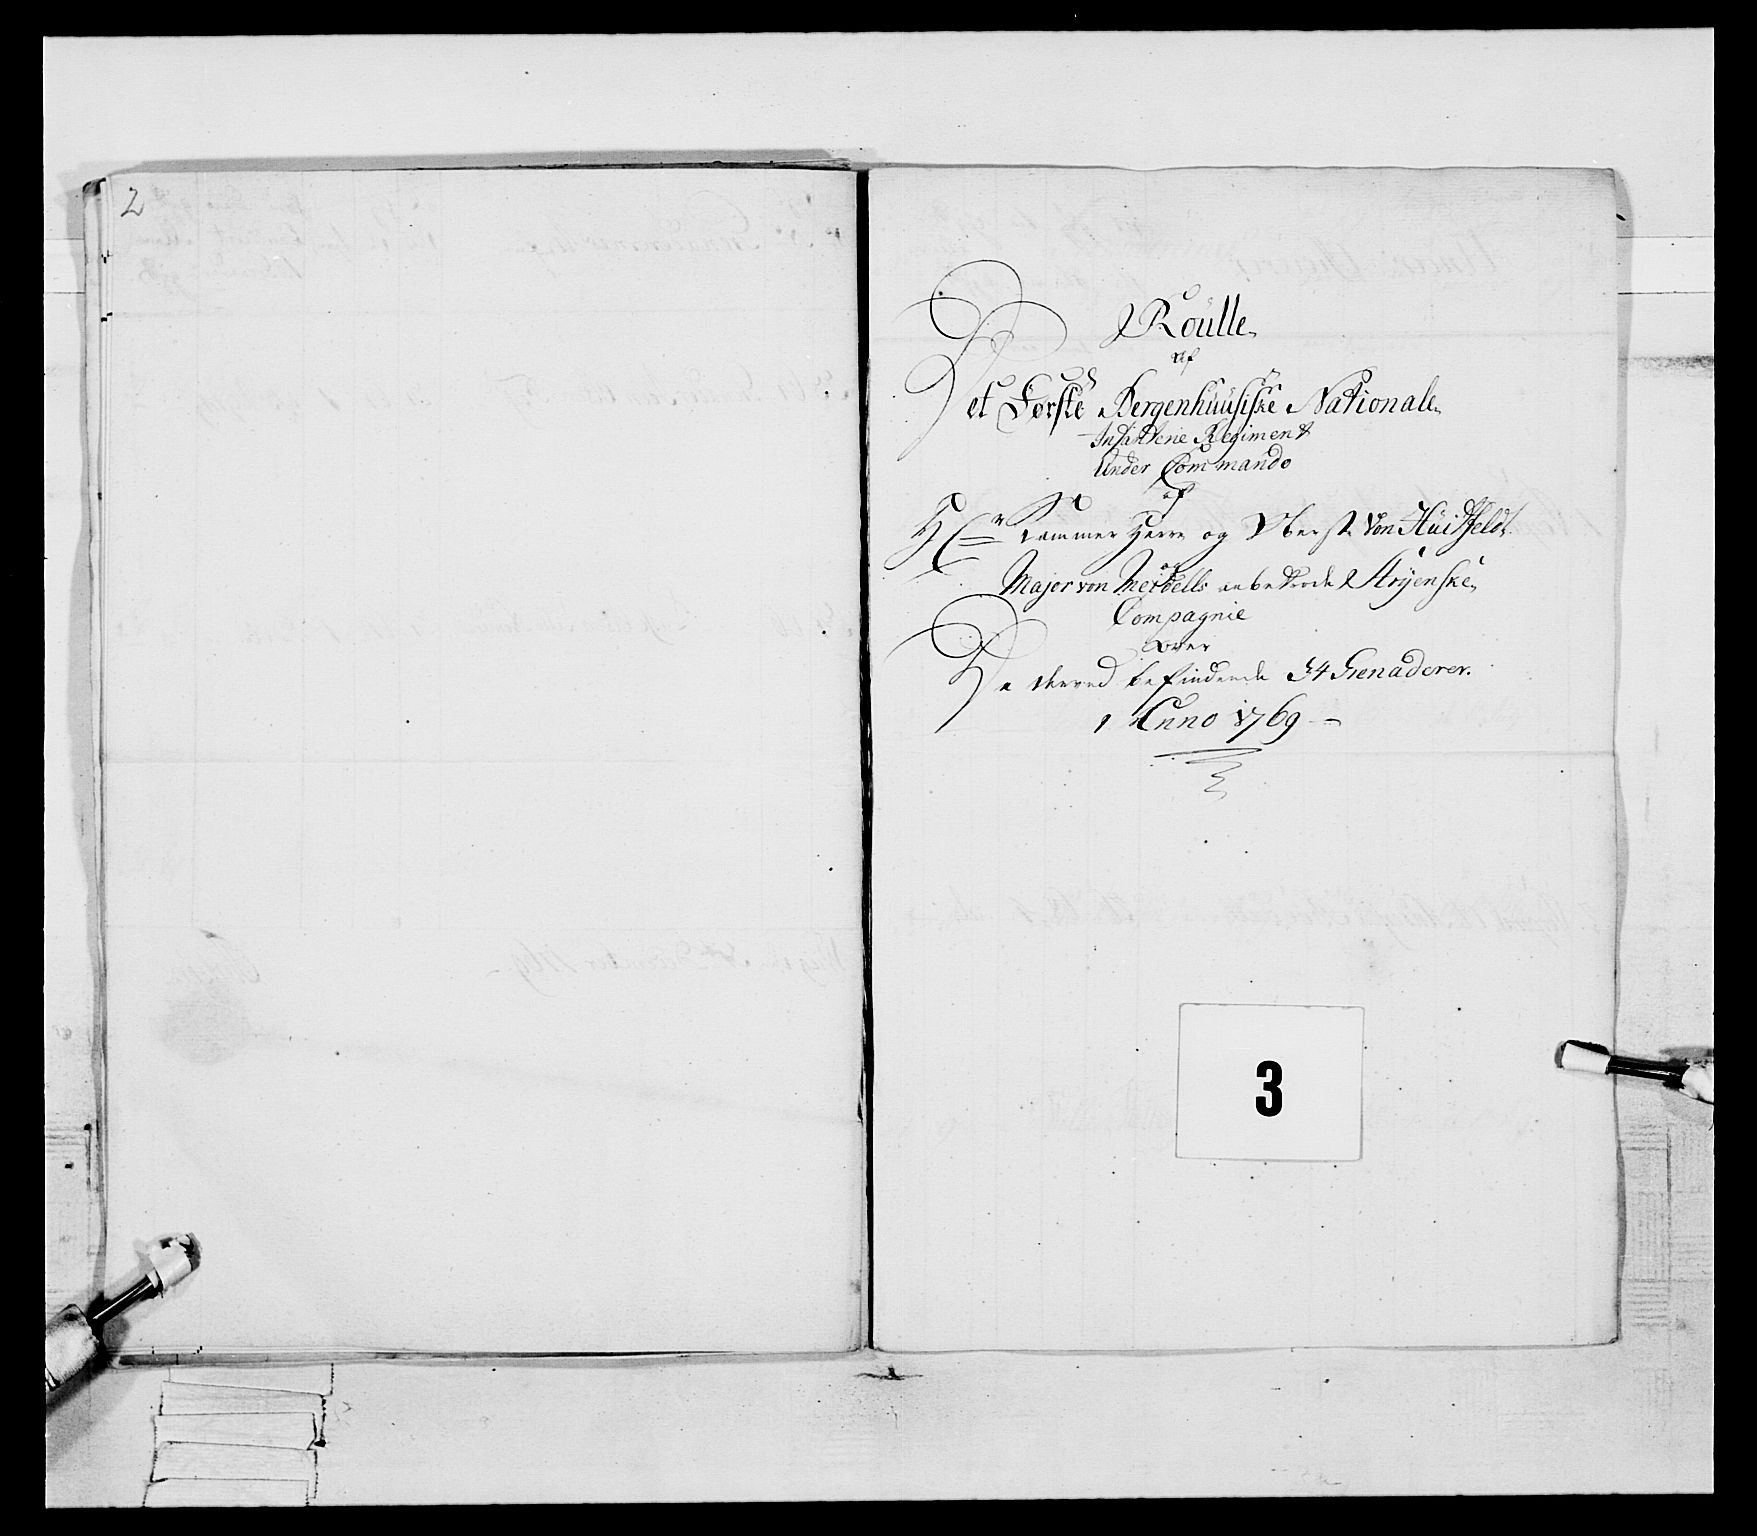 2
Roülle
af
Det Første Bergenhuusiske Nationale
Infanterie Regiment
Under Commando
af
Hr Cammer Herre og Oberst Von Hüitfeldt
og
Major von anbetroede Aryenske
Compagnie
over
De derved befindende 34 Grenaderer.
Anno 1769
3